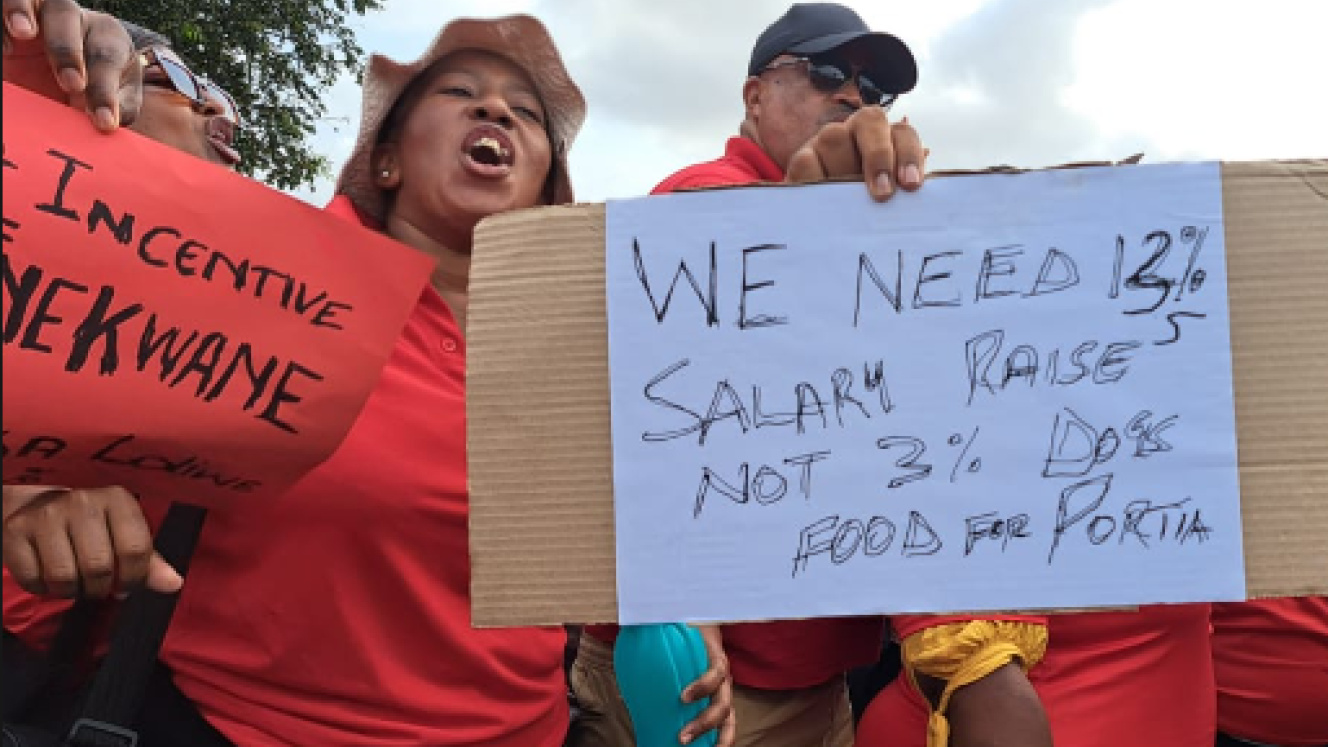 INCENTIVE
NEKWANE
WE NEED 13%
5
SALARY RAISE
NOT 3% DOGS
FOOD FOR PORTIA